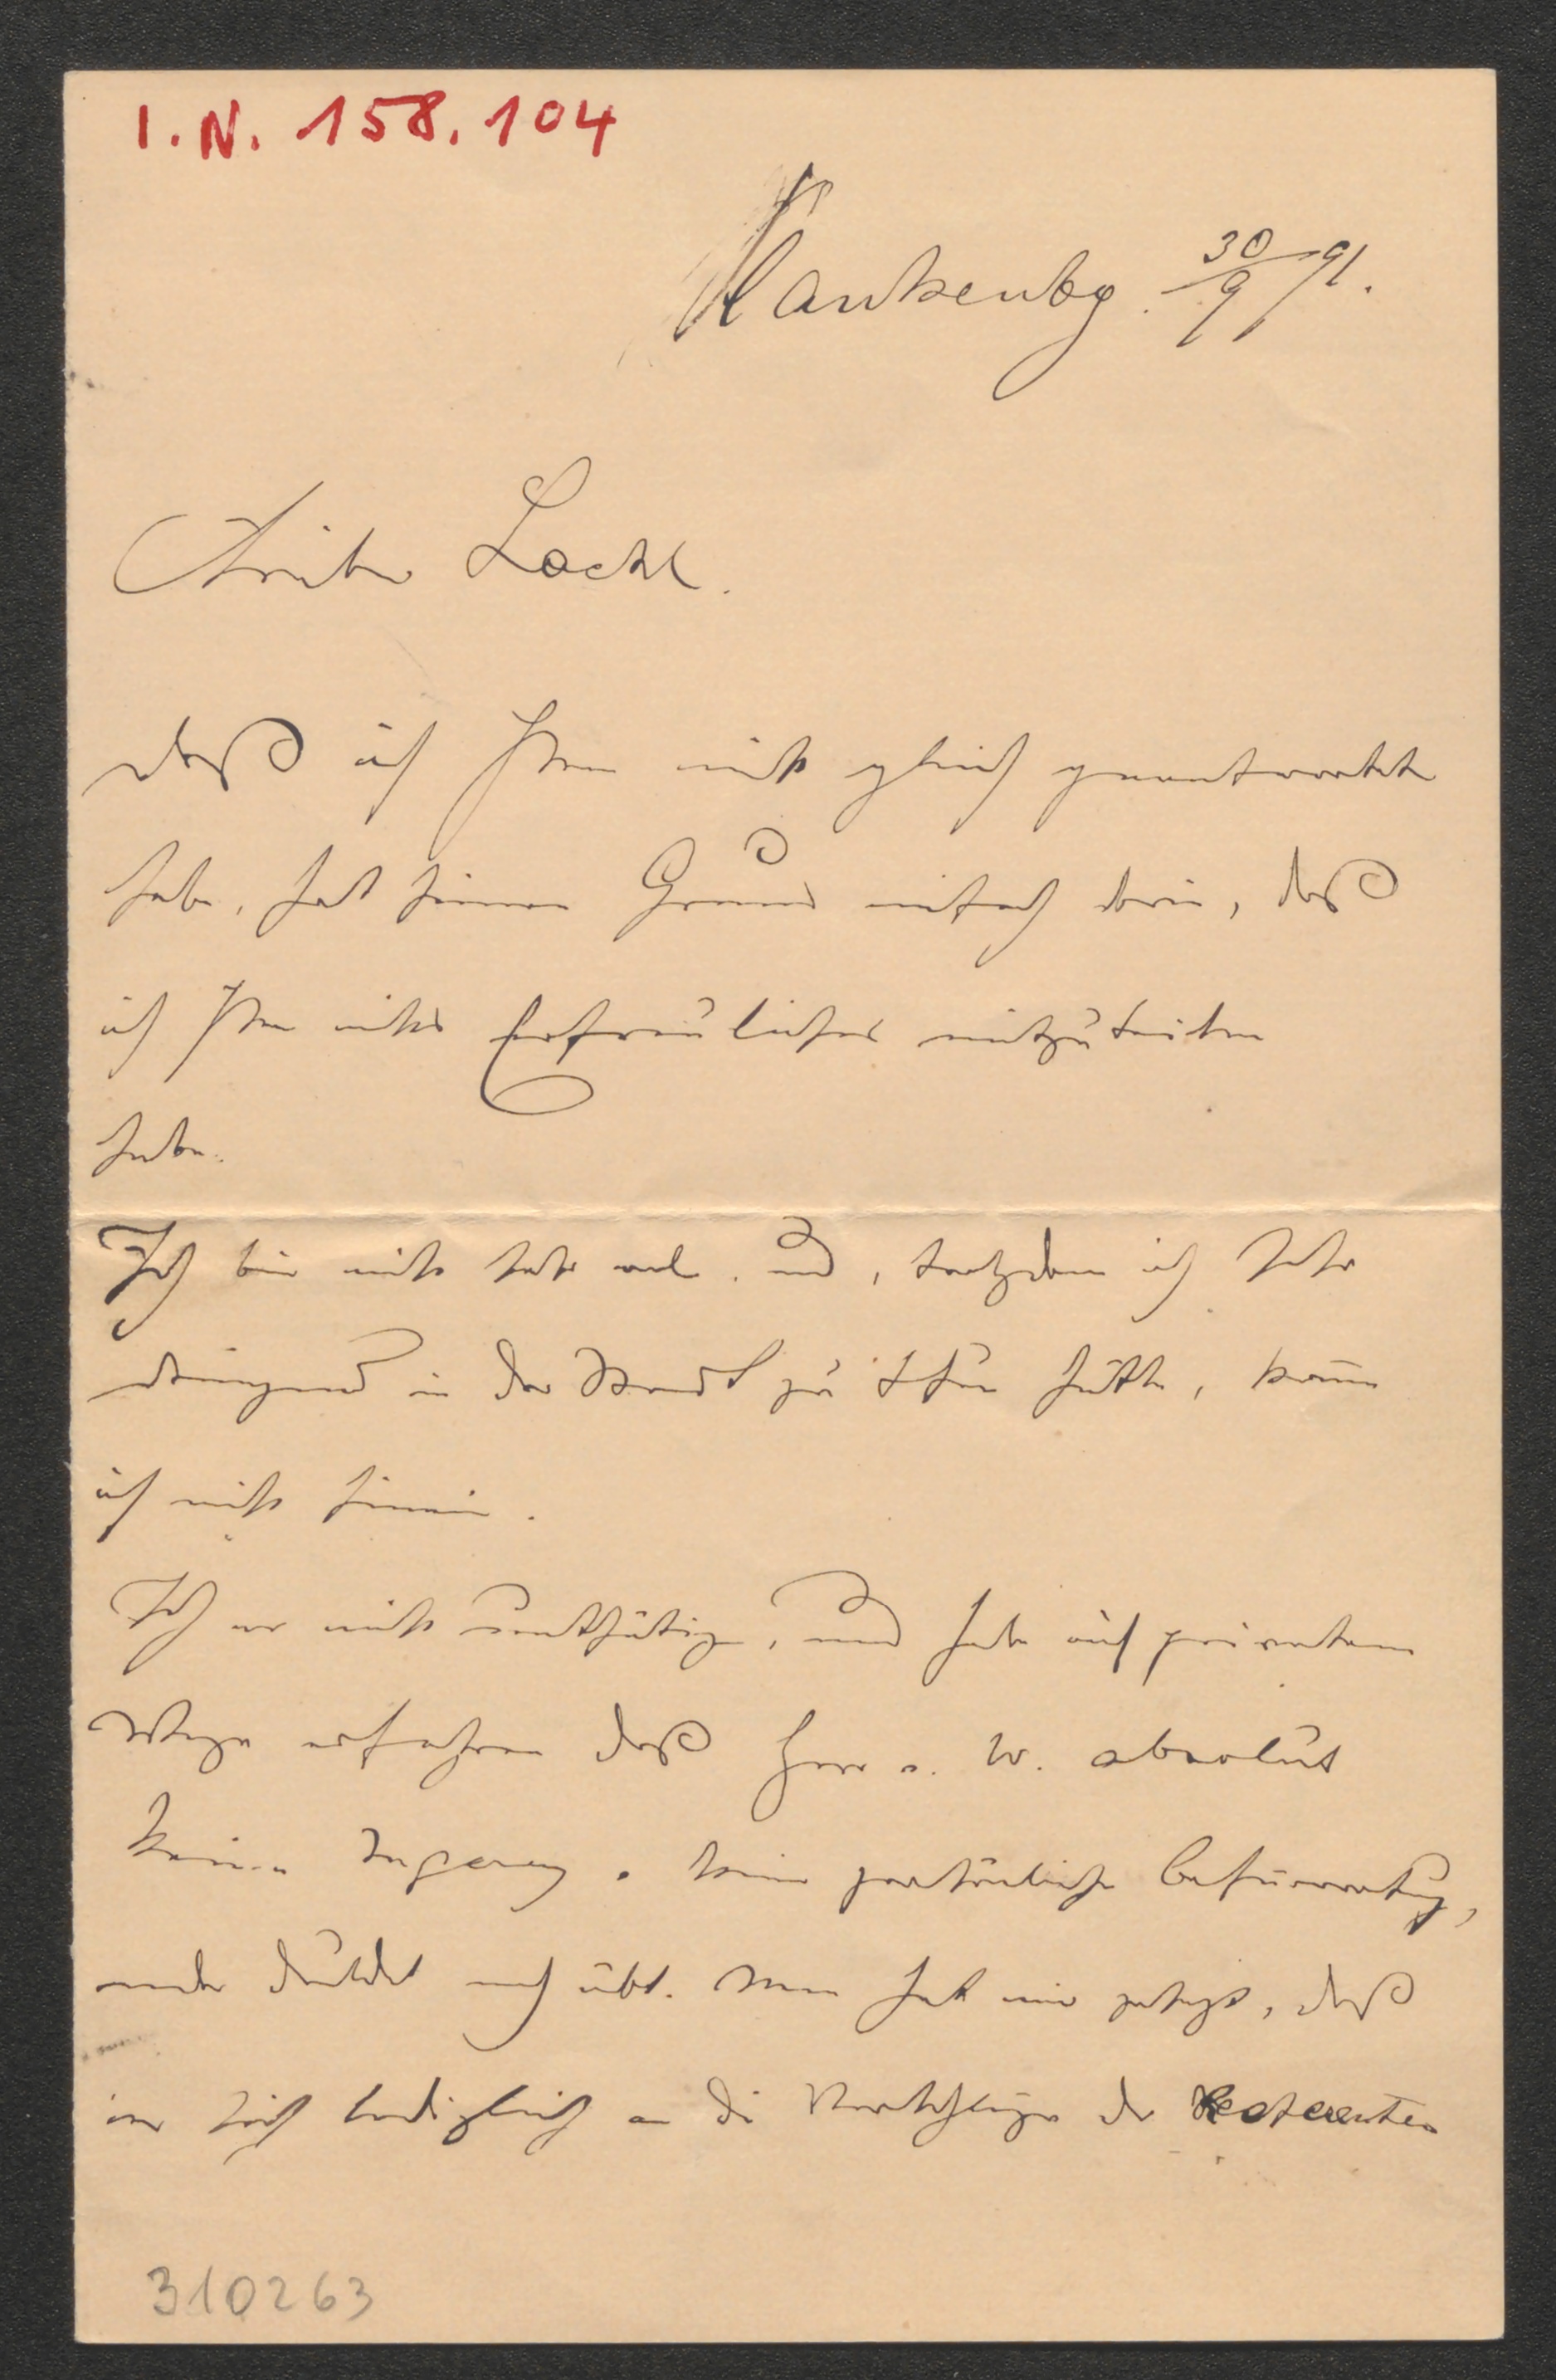 I.N. 158.104
Kankenbg. 30/9 91.
Lackl.
Daß ich Ihnen nicht gleich geantwortet
habe, hat seinen Grund einfach darin, daß
ich Ihnen nichts Erfreuliches mitzuteilen
habe.
Ich bin nicht sehr wol. und, trotzdem ich sehr
dringend in der Stadt zu thun hätte, kann
ich nicht hinein.
Ich war nicht unthätig, und habe auf privatem
Wege erfahren daß Herr v. W. absolut
keine Ingerenz. keine persönliche Befürwortung,
weder duldet noch übt. Man hat mir gesagt, daß
er sich lediglich an die Vorschläge der Referenten
310263